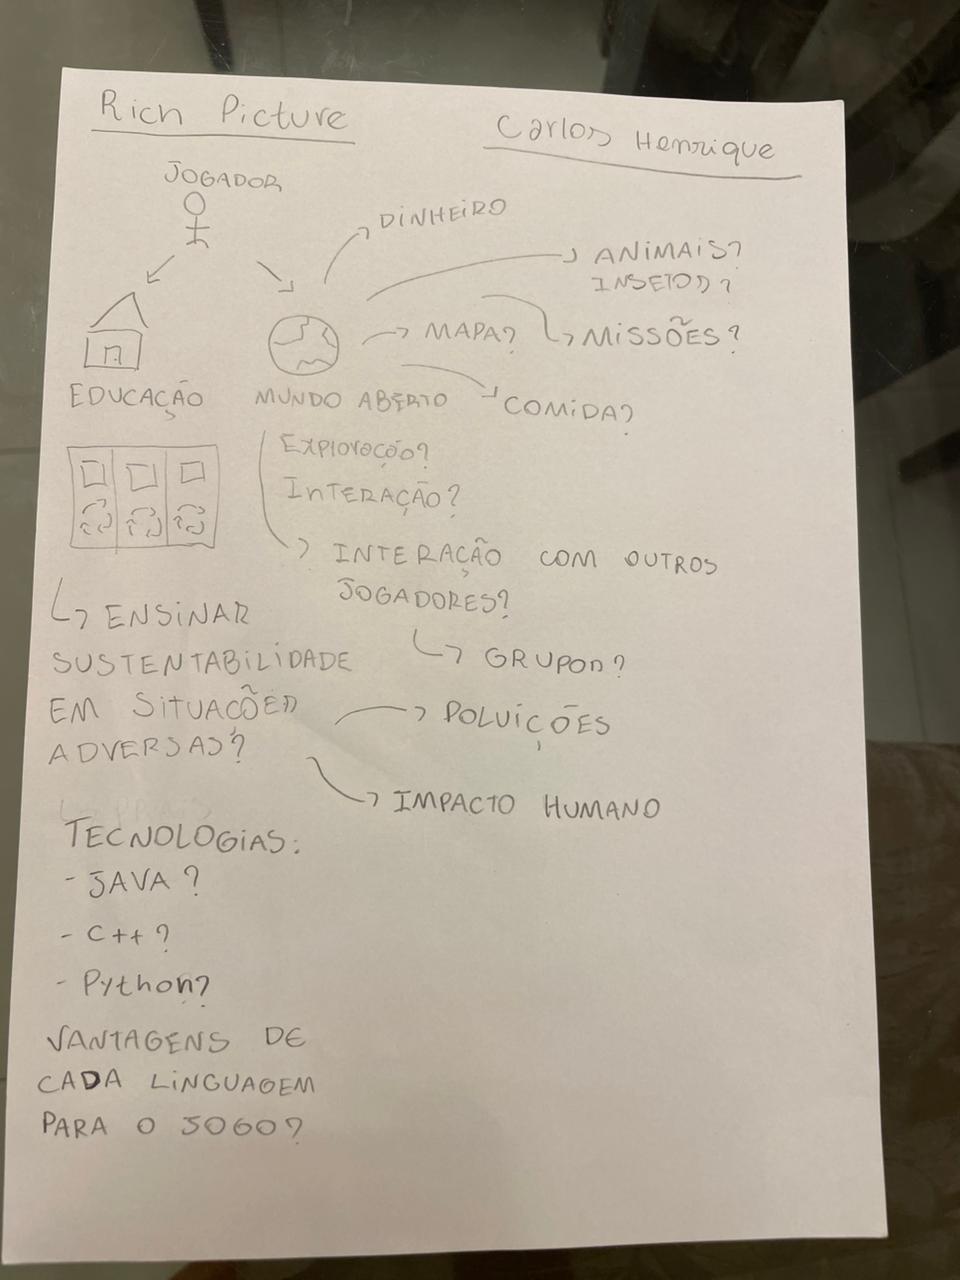 Rich Picture
Carlos Henrique
JOGADOR
DINHEIRO
ANIMAIS?
INSETOS?
MAPA?
MISSÕES?
EDUCAÇÃO
MUNDO ABERTO
COMIDA?
EXPLORAÇÃO?
INTERAÇÃO?
INTERAÇÃO COM OUTROS
JOGADORES?
ENSINAR
SUSTENTABILIDADE
GRUPOS?
EM SITUAÇÕES
ADVERSAS?
POLUIÇÕES
IMPACTO HUMANO
TECNOLOGIAS:
- JAVA?
- C++?
- Python?
VANTAGENS DE
CADA LINGUAGEM
PARA O JOGO?